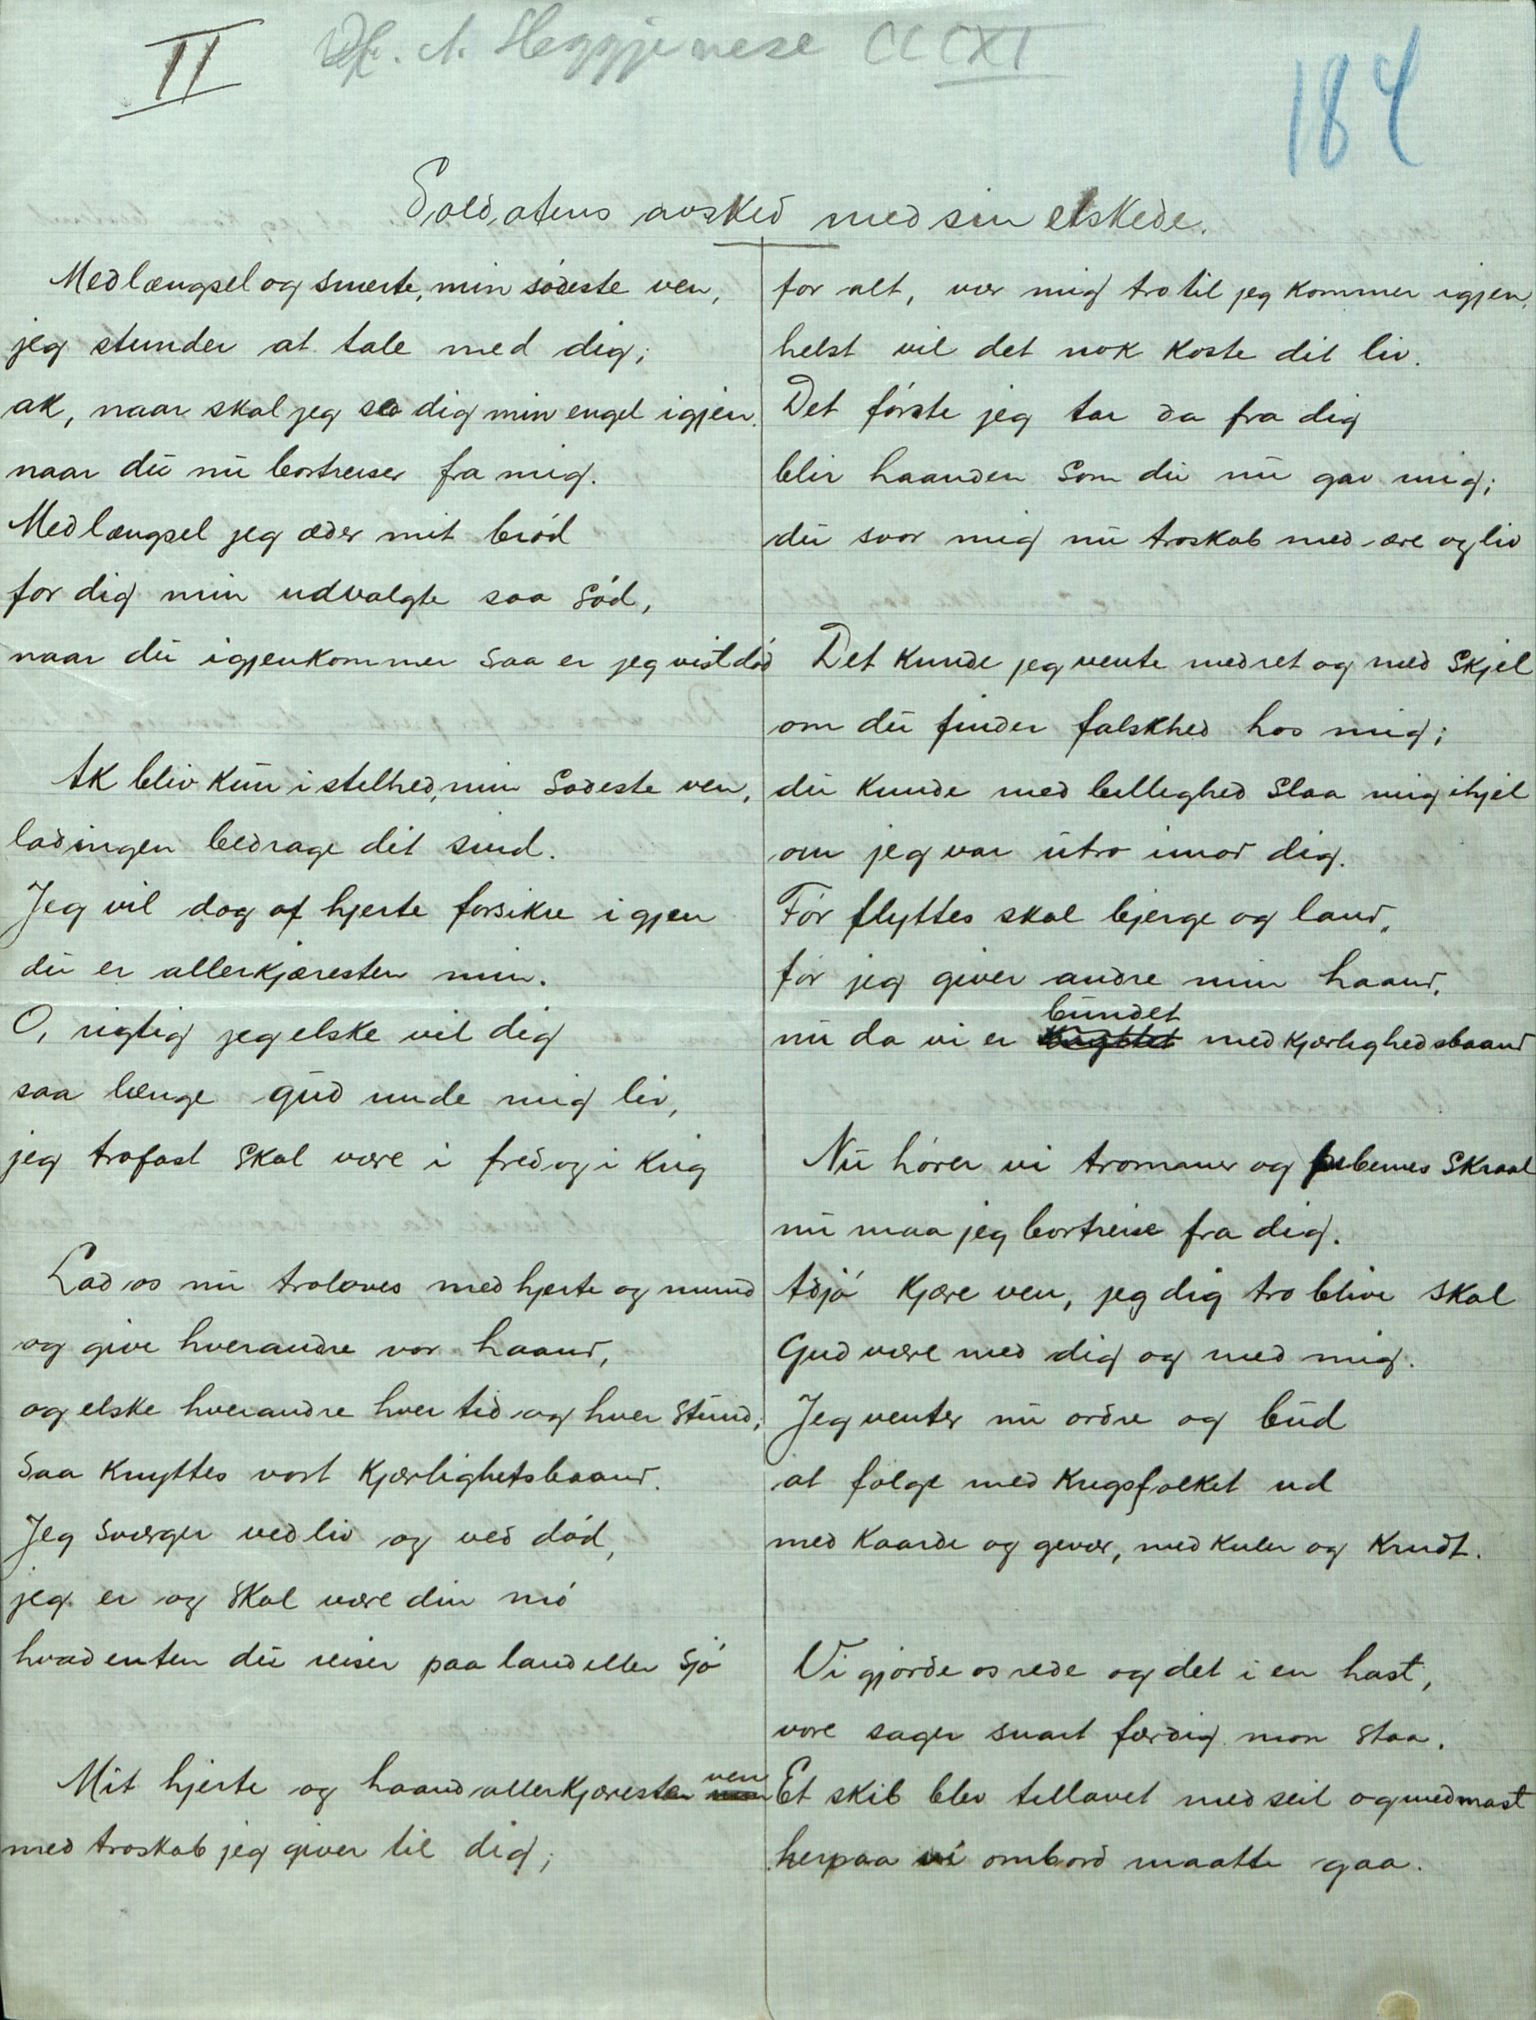 II
A. Heggjenese CCCXI
184
Soldatens avsked med sin elskede.
Med længsel og smerte, min sødeste ven,
jeg stunder at tale med dig;
ak, naar skal jeg se dig min engel igjen
naar du nu bortreiser fra mig.
Med længsel jeg æder mit brød
for dig min udvalgte saa sød,
naar du igjenkommer saa er jeg vist død
Ak bliv kun i stelhed, min sødeste ven,
lad ingen bedrage dit sind.
Jeg vil dog af hjerte forsikre igjen
du er allerkjæresten min.
O, rigtig jeg elske vil dig
saa længe gud unde mig liv,
jeg trofast skal være i fred og i krig
Lad os nu troloves med hjerte og mund
og give hverandre vor haand,
og elske hverandre hver tid og hver stund,
saa knyttes vort kjærlighetsbaand.
Jeg sværger ved liv og ved død,
jeg er og skal være din mø
hvad enten du reiser paa land eller sjø
Mit hjerte og haand allerkjæresten ven
med troskab jeg giver til dig;
for alt, vær mig tro til jeg kommer igjen,
helst vil det nok koste dit liv.
Det første jeg tar da fra dig
blir haanden som du nu gav mig;
du svor mig nu troskab med ære og liv
Det kunde jeg vente med ret og med skjel
om du finder falskhed hos mig;
du kunde med billighed slaa mig ihjel
om jeg var utro imod dig.
Før flyttes skal bjerge og land,
før jeg giver andre min haand,
bundet
nu da vi er knyttet med kjærlighedsbaand
Nu hører vi trommer og pibernes skraal
nu maa jeg bortreise fra dig.
Adjø kjære ven, jeg dig tro blive skal
Gud være med dig og med mig.
Jeg venter nu ordre og bud
at følge med krigsfolket ud
med kaarde og gevær, med kuler og krudt.
Vi gjorde os rede og det i en hast,
vore sager snart færdig mon staa.
Et skib blev tillavet med seil og med mast
herpaa vi ombord maatte gaa.